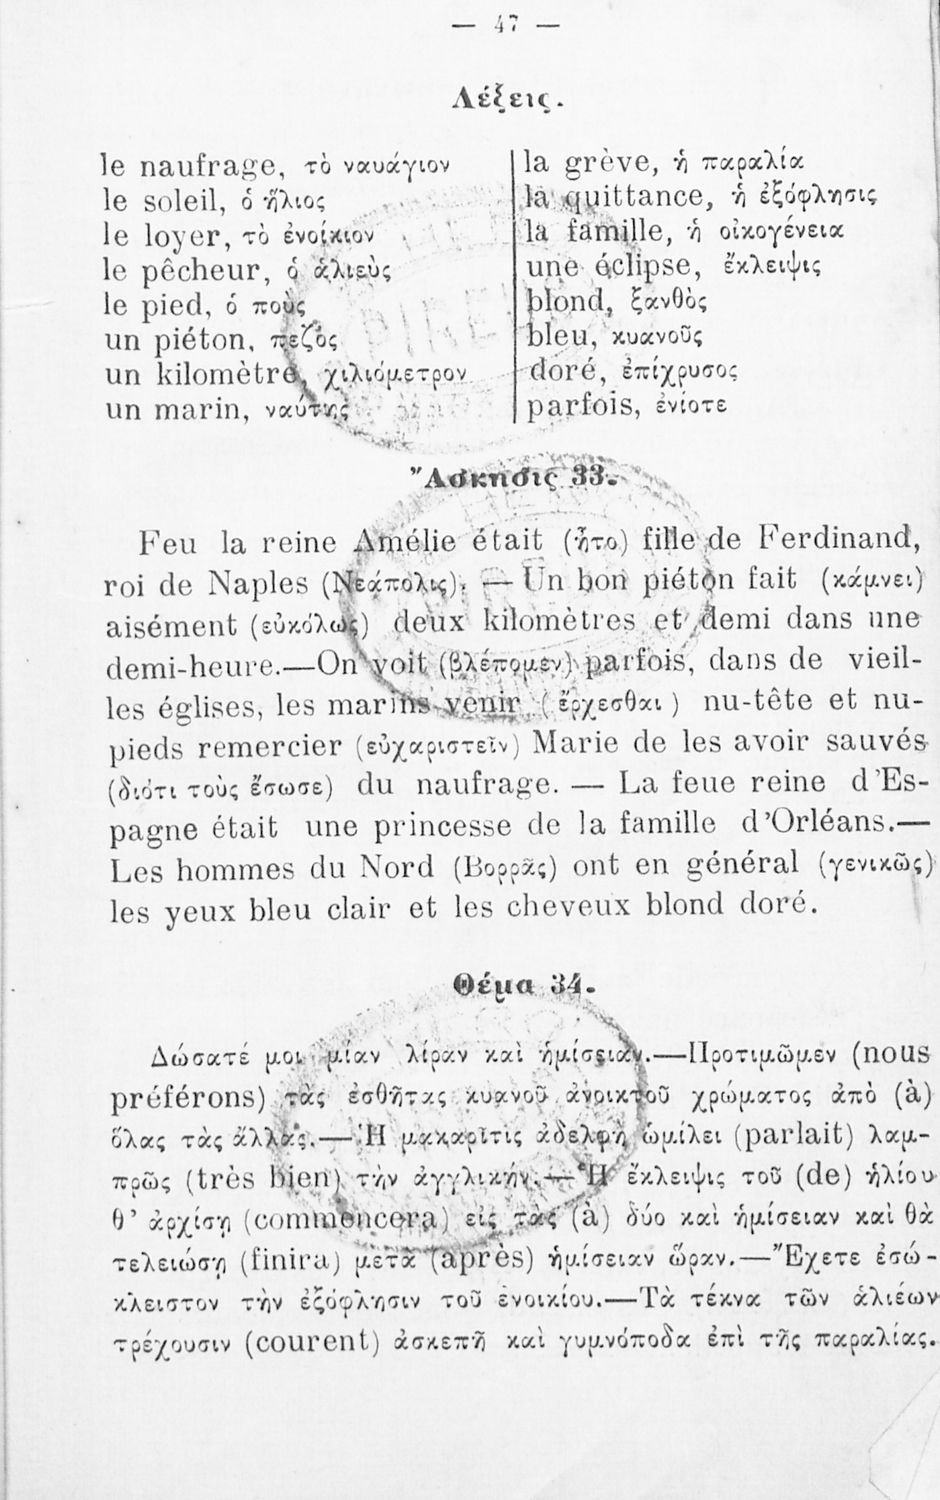 — 47 —
Λέξεις.
le naufrage, τὸ ναυάγιον
le soleil, ὁ ἥλιος
le loyer, τὸ ἐνοίκιον
le pêcheur, ὁ ἁλιεὺς
le pied, ὁ ποὺς
un piéton, πεζὸς
un kilomètre, χιλιόμετρον
un marin, ναύτης
la grève, ἡ παραλία
la quittance, ἡ ἐξόφλησις
la famille, ἡ οἰκογένεια
une éclipse, ἔκλειψις
blond, ξανθὸς
bleu, κυανοῦς
doré, ἐπίχρυσος
parfois, ἐνίοτε
Ἄσκησις 33.
Feu la reine Amélie était (ἦτο) fille de Ferdinand,
roi de Naples (Νεάπολις). — Un bon piéton fait (κάμνει)
aisément (εὐκόλως) deux kilomètres et demi dans une
demi-heure.—On voit (βλέπομεν) parfois, dans de vieil-
les églises, les marins venir (ἔρχεσθαι) nu-tête et nu-
pieds remercier (εὐχαριστεῖν) Marie de les avoir sauvés
(διότι τοὺς ἔσωσε) du naufrage. — La feue reine d'Es-
pagne était une princesse de la famille d'Orléans.—
Les hommes du Nord (Βορρᾶς) ont en général (γενικῶς)
les yeux bleu clair et les cheveux blond doré.
Θέμα 34.
Δώσατέ μοι μίαν λίραν καὶ ἡμίσειαν.—Προτιμῶμεν (nous
préférons) τὰς ἐσθῆτας κυανοῦ ἀνοικτοῦ χρώματος ἀπὸ (à)
ὅλας τὰς ἄλλας.—Ἡ μακαρῖτις ἀδελφὴ ὡμίλει (parlait) λαμ-
πρῶς (très bien) τὴν ἀγγλικήν.—Ἡ ἔκλειψις τοῦ (de) ἡλίου
θ' ἀρχίσῃ (commencera) εἰς τὰς (à) δύο καὶ ἡμίσειαν καὶ θὰ
τελειώσῃ (finira) μετὰ (après) ἡμίσειαν ὥραν.—Ἔχετε ἐσώ-
κλειστον τὴν ἐξόφλησιν τοῦ ἐνοικίου.—Τὰ τέκνα τῶν ἁλιέων
τρέχουσιν (courent) ἀσκεπῆ καὶ γυμνόποδα ἐπὶ τῆς παραλίας.